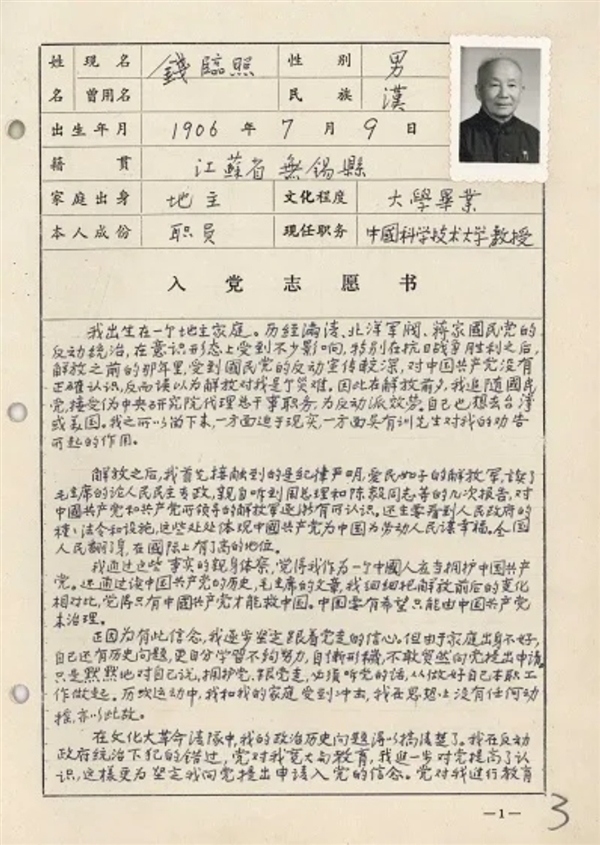 姓 现名 錢臨照 性别 男
名 曾用名 民族 漢
出生年月 1906年7月9日
籍贯 江蘇省無锡縣
家庭出身 地主 文化程度 大學畢業
本人成份 职员 现任职务 中國科学技术大学教授
入党志愿书
我出生在一个地主家庭。历经满清、北洋军阀、蒋家國民党的
反动统治,在意识形态上受到不少影响,特别在抗日战争胜利之后,
解放之前的那年里,受到國民党的反动宣传较深,对中国共产党没有
正确认识,反而误以为解放对我是个災难。因此在解放前夕,我追随國民
党,接受伪中央研究院代理总干事职务,为反动派效劳。自己也想去台湾
或美国。我之所以留下来,一方面迫于现实,一方面吴有训先生对我的劝告
所起的作用。
解放之后,我首先接触到的是纪律严明,爱民如子的解放军,读了
毛主席的论人民民主专政,親自听到周总理和陈毅同志等的几次报告,对
中國共产党和共产党所领导的解放军逐渐有所认识。还主要看到人民政府的
種種法令和设施,这些处处体现中國共产党为中国为劳动人民谋幸福。全国
人民翻了身,在國际上有了高的地位。
我通过这些事实的親身体察,觉得我作为一个中國人应当拥护中国共产
党。还通过读中国共产党的历史,毛主席的文章,我细细把解放前后的变化
相对比,觉得只有中國共产党才能救中国。中国要有希望只能由中国共产党
来治理。
正因为有此信念,我逐步坚定跟着党走的信心。但由于家庭出身不好,
自己还有历史问题,更自分学習不够努力,自惭形穢,不敢贸然向党提出申请。
只是默默地对自己说,拥护党,跟党走,必须听党的话,从做好自己本职工
作做起。历次运动中,我和我的家庭受到冲击,我在思想上没有任何动
摇,亦以此故。
在文化大革命清隊中,我的政治历史问题得以搞清楚了。我在反动
政府统治下犯的错过,党对我宽大与教育,我進一步对党提高了认
识,这樣更为坚定我向党提出申請入党的信念。党对我进行教育
—1—
3